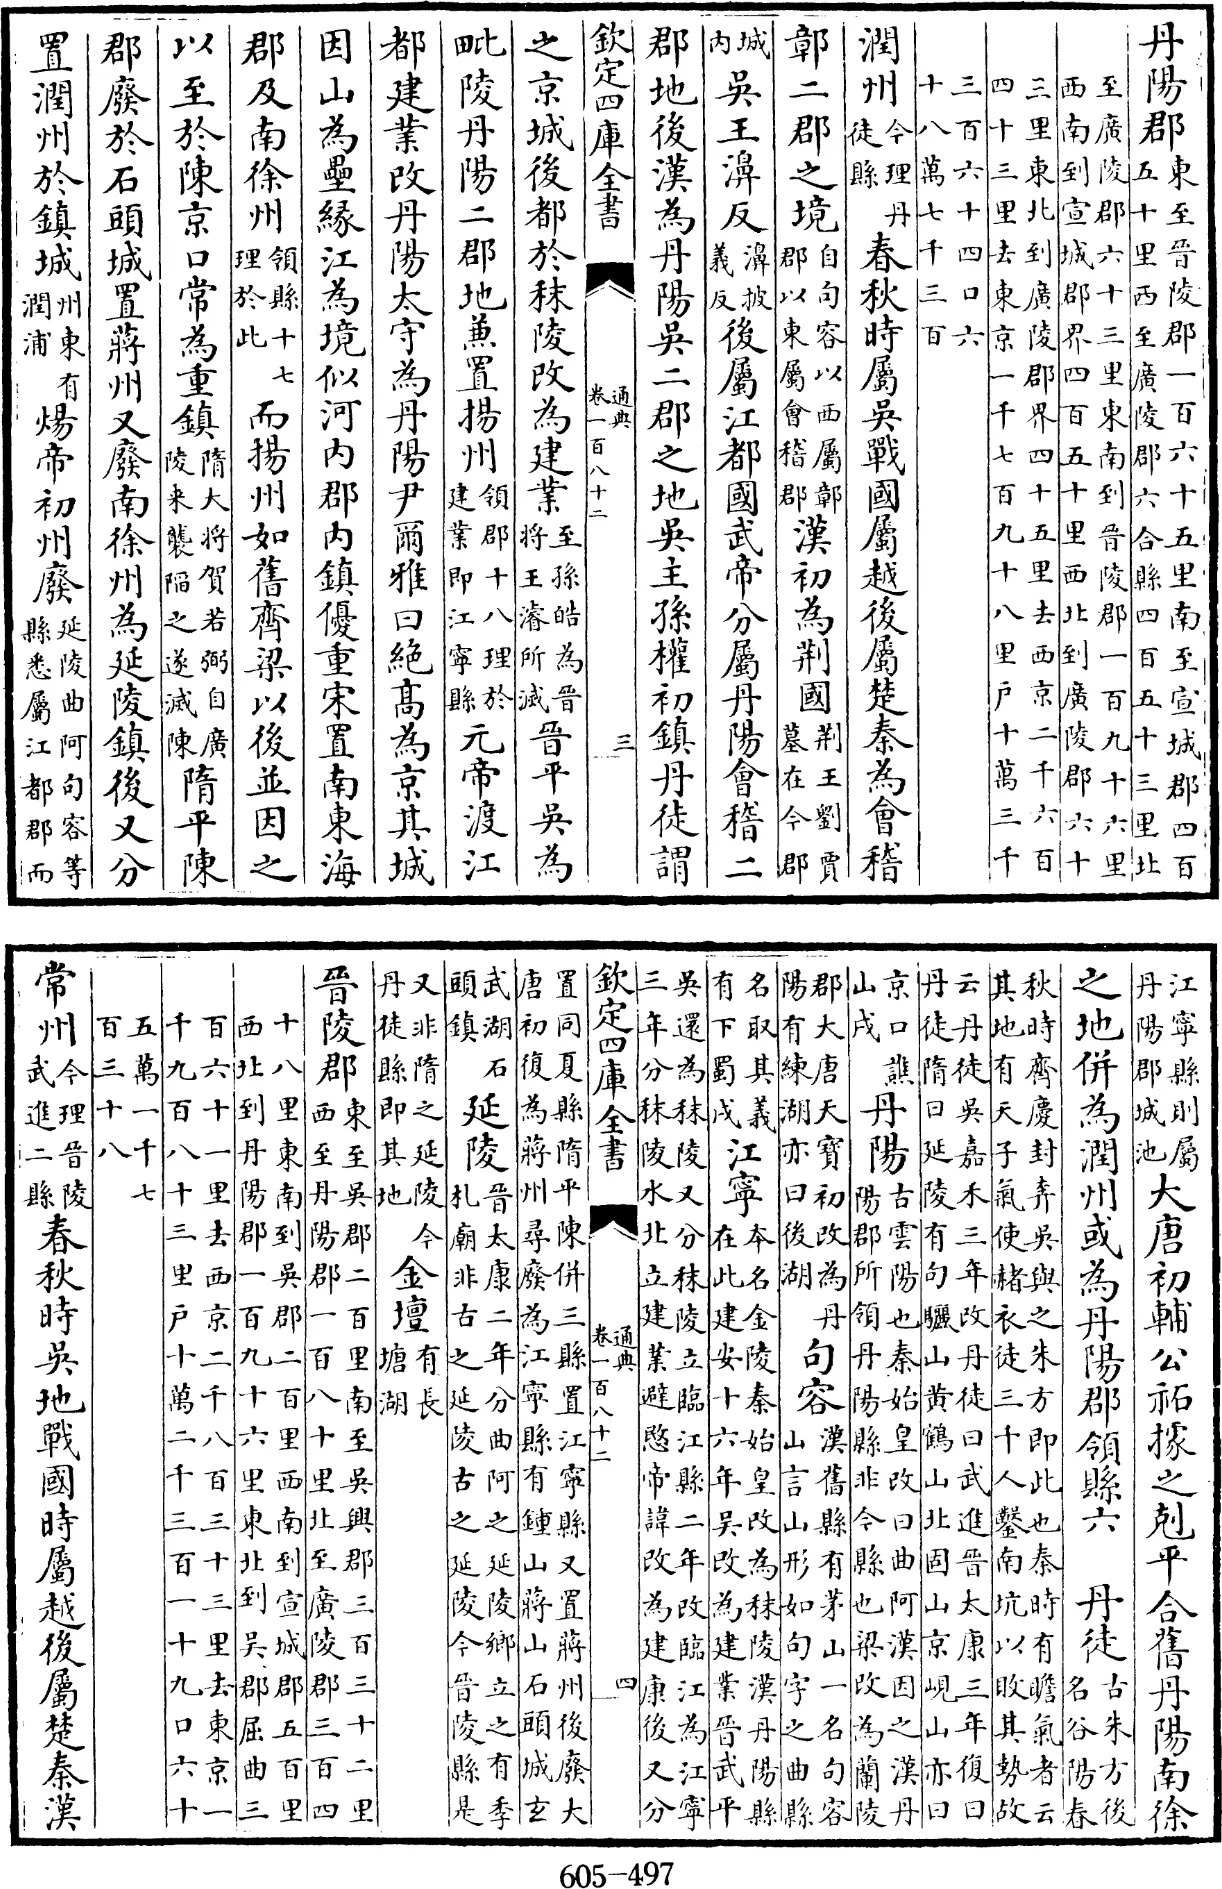 丹陽郡東至晉陵郡一百六十五里南至宣城郡四百五十里西至廣陵郡六合縣四百五十三里北
至廣陵郡六十三里東南到晉陵郡一百九十六里西南到宣城郡界四百五十里西北到廣陵郡六十
三里東北到廣陵郡界四十五里去西京二千六百四十三里去東京一千七百九十八里戸十萬三千
三百六十四口六十八萬七千三百
潤州今理丹徒縣春秋時屬吳戰國屬越後屬楚秦為會稽
鄣二郡之境自句容以西屬鄣郡以東屬會稽郡漢初為荆國荆王劉賈墓在今郡
城内吳王濞反濞披義反後屬江都國武帝分屬丹陽會稽二
郡地後漢為丹陽吳二郡之地吳主孫權初鎮丹徒謂
欽定四庫全書 通典卷一百八十二 三
之京城後都於秣陵改為建業至孫皓為晉將王濬所滅晉平吳為
毗陵丹陽二郡地兼置揚州領郡十八理於建業即江寧縣元帝渡江
都建業改丹陽太守為丹陽尹爾雅曰絶髙為京其城
因山為壘緣江為境似河内郡内鎮優重宋置南東海
郡及南徐州領縣十七理於此而揚州如舊齊梁以後並因之
以至於陳京口常為重鎮隋大將賀若弼自廣陵来襲陷之遂滅陳隋平陳
郡廢於石頭城置蔣州又廢南徐州為延陵鎮後又分
置潤州於鎮城州東有潤浦煬帝初州廢延陵曲阿句容等縣悉屬江都郡而
江寧縣則屬丹陽郡城池大唐初輔公祏據之剋平合舊丹陽南徐
之地併為潤州或為丹陽郡領縣六 丹徒古朱方後名谷陽春
秋時齊慶封奔吳與之朱方即此也秦時有瞻氣者云其地有天子氣使赭衣徒三千人鑿南坑以敗其勢故
云丹徒吳嘉禾三年改丹徒曰武進晉太康三年復曰丹徒隋曰延陵有句驪山黃鶴山北固山京峴山亦曰
京口山戌譙丹陽古雲陽也秦始皇改曰曲阿漢因之漢丹陽郡所領丹陽縣非今縣也梁改為蘭陵
郡大唐天寶初改為丹陽有練湖亦曰後湖句容漢舊縣有茅山一名句容山言山形如句字之曲縣
名取其義有下蜀戌江寧本名金陵秦始皇改為秣陵漢丹陽縣在此建安十六年吳改為建業晉武平
吳還為秣陵又分秣陵立臨江縣二年改臨江為江寧三年分秣陵水北立建業避愍帝諱改為建康後又分
欽定四庫全書 通典卷一百八十二 四
置同夏縣隋平陳併三縣置江寧縣又置蔣州後廢大唐初復為蔣州尋廢為江寧縣有鍾山蔣山石頭城玄
武湖石頭鎮延陵晉太康二年分曲阿之延陵鄉立之有季札廟非古之延陵古之延陵今晉陵縣是
又非隋之延陵今丹徒縣即其地金壇有長塘湖
晉陵郡東至吳郡二百里南至吳興郡三百三十二里西至丹陽郡一百八十里北至廣陵郡三百四
十八里東南到吳郡二百里西南到宣城郡五百里西北到丹陽郡一百九十六里東北到吳郡屈曲三
百六十一里去西京二千八百三十三里去東京一千九百八十三里戸十萬二千三百一十九口六十
五萬一千七百三十八
常州今理晉陵武進二縣春秋時吳地戰國時屬越後屬楚秦漢
605-497